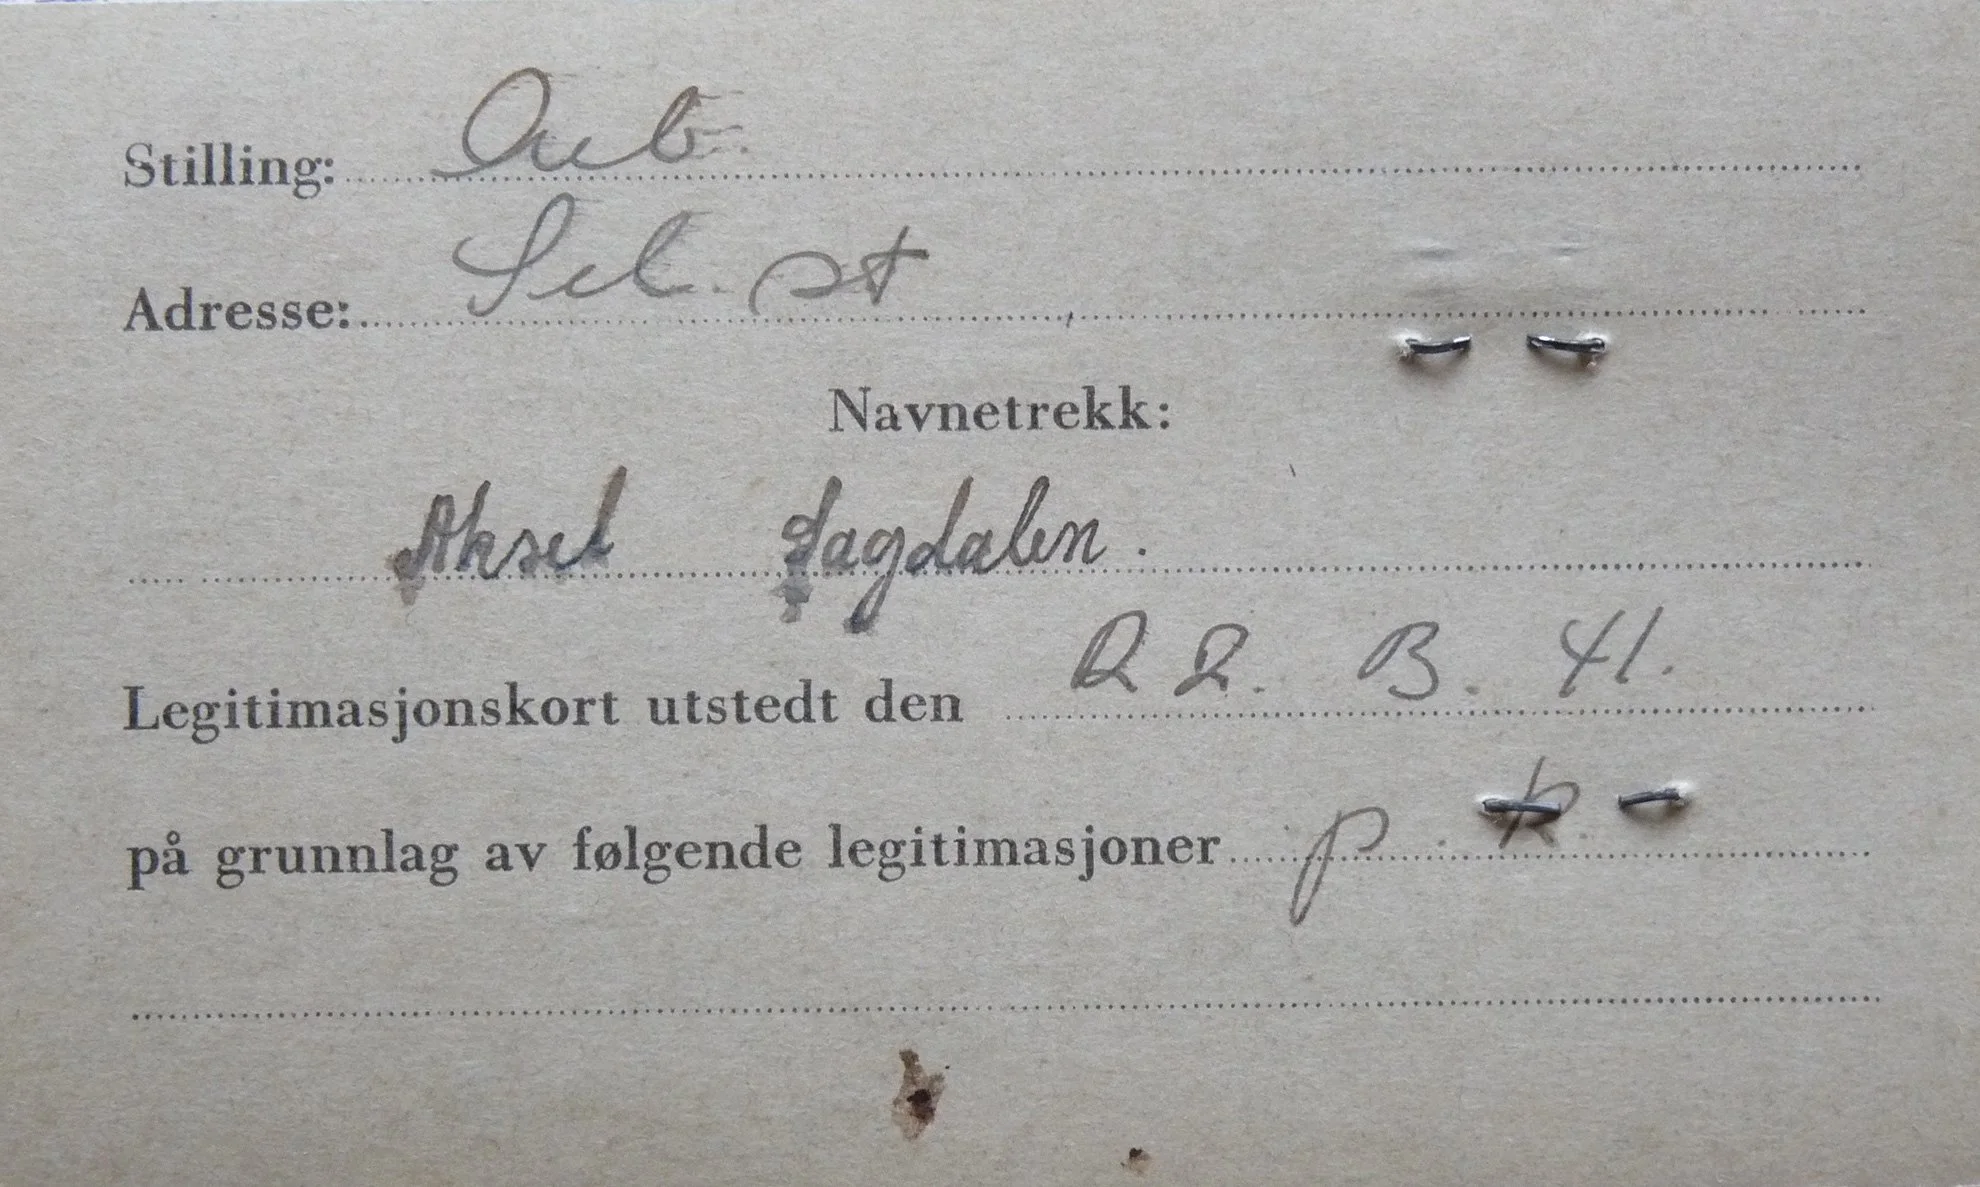 Stilling:
Adresse: st
Navnetrekk:
Aksel Sagdalen.
Legitimasjonskort utstedt den 22. 3. 41.
på grunnlag av følgende legitimasjoner p. k.